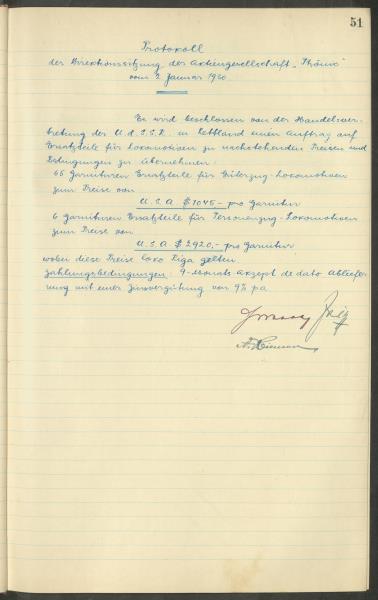 51
Protokoll
der Direktionssitzung der Aktiengesellschaft „Phönix"
vom 2. Januar 1930.
Es wird beschlossen von der Handelsver-
tretung der U.d.S.S.R. in Lettland einen Auftrag auf
Ersatzteile für Lokomotiven zu nachstehenden Preisen und
Bedingungen zu übernehmen:
65 Garnituren Ersatzteile für Güterzug-Lokomotiven
zum Preise von
U.S.A. $ 1045,- pro Garnitur
6 Garnituren Ersatzteile für Personenzug-Lokomotiven
zum Preise von
U.S.A. $ 2920,- pro Garnitur
wobei diese Preise loko Riga gelten
Zahlungsbedingungen: 9-Monats Akzept de dato Abliefe-
rung mit einer Zinsvergütung von 9% p.a.